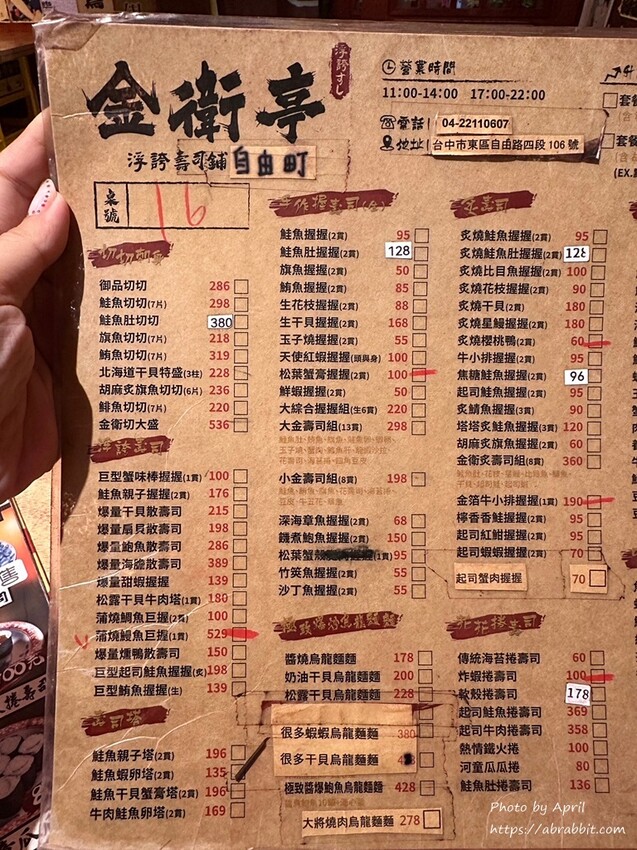 金衛亭
浮誇すし
浮誇壽司鋪 自由町
營業時間
11:00-14:00 17:00-22:00
電話 04-22110607
地址 台中市東區自由路四段 106 號
桌號 16
御品切切 286
鮭魚切切(7片) 298
鮭魚肚切切 380
旗魚切切(7片) 218
鮪魚切切(7片) 319
北海道干貝特盛(3枚) 228
胡麻炙旗魚切切(6片) 236
鯡魚切切(7片) 220
金衛切大盛 536
巨型蟹味棒握握(1貫) 100
鮭魚親子握握(2貫) 176
爆量干貝散壽司 215
爆量扇貝散壽司 198
爆量鮑魚散壽司 286
爆量海膽散壽司 389
爆量甜蝦握握 139
松露干貝牛肉塔(1貫) 180
蒲燒鯛魚巨握(2貫) 100
蒲燒鰻魚巨握(1貫) 529
爆量燻鴨散壽司 150
巨型起司鮭魚握握(炙) 198
巨型鮪魚握握(生) 139
壽司塔
鮭魚親子塔(2貫) 196
鮭魚蝦卵塔(2貫) 135
鮭魚干貝蟹膏塔(2貫) 196
牛肉鮭魚卵塔(2貫) 169
手作握壽司(生)
鮭魚握握(2貫) 95
鮭魚肚握握(2貫) 128
旗魚握握(2貫) 50
鮪魚握握(2貫) 85
生花枝握握(2貫) 88
生干貝握握(2貫) 168
玉子燒握握(2貫) 55
天使紅蝦握握(頭與身) 100
松葉蟹膏握握(2貫) 100
鮮蝦握握(2貫) 50
大綜合握握組(生6貫) 220
大金壽司組(13貫) 298
小金壽司組(8貫) 198
深海章魚握握(2貫) 68
饑煮鮑魚握握(2貫) 150
松葉蟹殼 (1貫) 95
竹筴魚握握(2貫) 55
沙丁魚握握(2貫) 55
醬燒烏龍麵麵 178
奶油干貝烏龍麵麵 200
松露干貝烏龍麵麵 228
很多蝦蝦烏龍麵麵 380
很多干貝烏龍麵麵
極致醬爆鮑魚烏龍麵麵 428
大將燒肉烏龍麵麵 278
炙壽司
炙燒鮭魚握握(2貫) 95
炙燒鮭魚肚握握(2貫) 128
炙燒比目魚握握(2貫) 100
炙燒花枝握握(2貫) 90
炙燒干貝(2貫) 180
炙燒星鰻握握(2貫) 180
炙燒櫻桃鴨(2貫) 60
牛小排握握(2貫) 95
焦糖鮭魚握握(2貫) 96
起司鮭魚握握(2貫) 95
炙鯖魚握握(2貫) 90
塔塔炙鮭魚握握(3貫) 120
胡麻炙旗魚握握(2貫) 60
金衛炙壽司組(8貫) 360
金箔牛小排握握(1貫) 190
檸香香鮭握握(2貫) 95
起司紅魽握握(2貫) 95
起司蝦蝦握握(2貫) 70
起司蟹肉握握 70
傳統海苔捲壽司 60
炸蝦捲壽司 100
軟殼捲壽司 178
起司鮭魚捲壽司 369
起司牛肉捲壽司 358
熱情鐵火捲 100
河童瓜瓜捲 80
鮭魚肚捲壽司 136
Photo by April
https://abrabbit.com